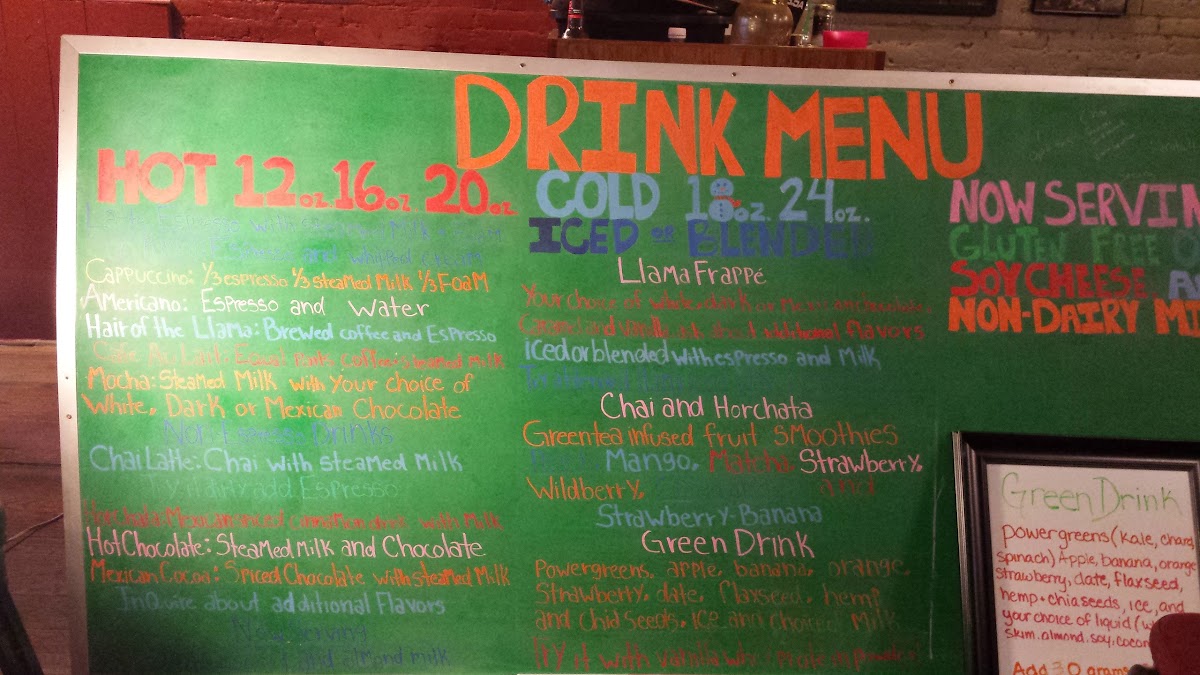 DRINK MENU
HOT 12oz 16oz 20oz
with steamed Milk + Foam
Espresso and whipped cream
Cappuccino: 1/3 espresso 1/3 steamed Milk 1/3 FoaM
Americano: Espresso and Water
Hair of the Llama: Brewed coffee and Espresso
Cafe Au Lait: Equal Parts coffee + steamed Milk
Mocha: Steamed Milk with your choice of
White, Dark or Mexican Chocolate
Non Espresso Drinks
Chai Latte: Chai with steamed Milk
add Espresso
Horchata: Mexican spiced cinnamon drink with Milk
Hot Chocolate: Steamed Milk and Chocolate
Mexican Cocoa: Spiced Chocolate with steamed Milk
InQuire about additional Flavors
Now serving
and almond milk
COLD 18oz. 24oz.
ICED or BLENDED
Llama Frappé
Your choice of white, dark or Mexican chocolate
Caramel and Vanilla ask about additional flavors
iced or blended with espresso and Milk
Chai and Horchata
Green tea infused fruit smoothies
Mango, Matcha, Strawberry,
Wildberry, and
Strawberry-Banana
Green Drink
Powergreens, apple, banana, orange,
Strawberry, date, flaxseed, hemp
and chia seeds, ice and choice of Milk
Try it with vanilla
NOW SERVIN
GLUTEN FREE
SOY CHEESE
NON-DAIRY MI
Green Drink
powergreens (kale, chard,
spinach) Apple, banana, orange
strawberry, date, flaxseed,
hemp + chia seeds, ice, and
your choice of liquid (w
skim, almond, soy, cocon
Add 30 grams